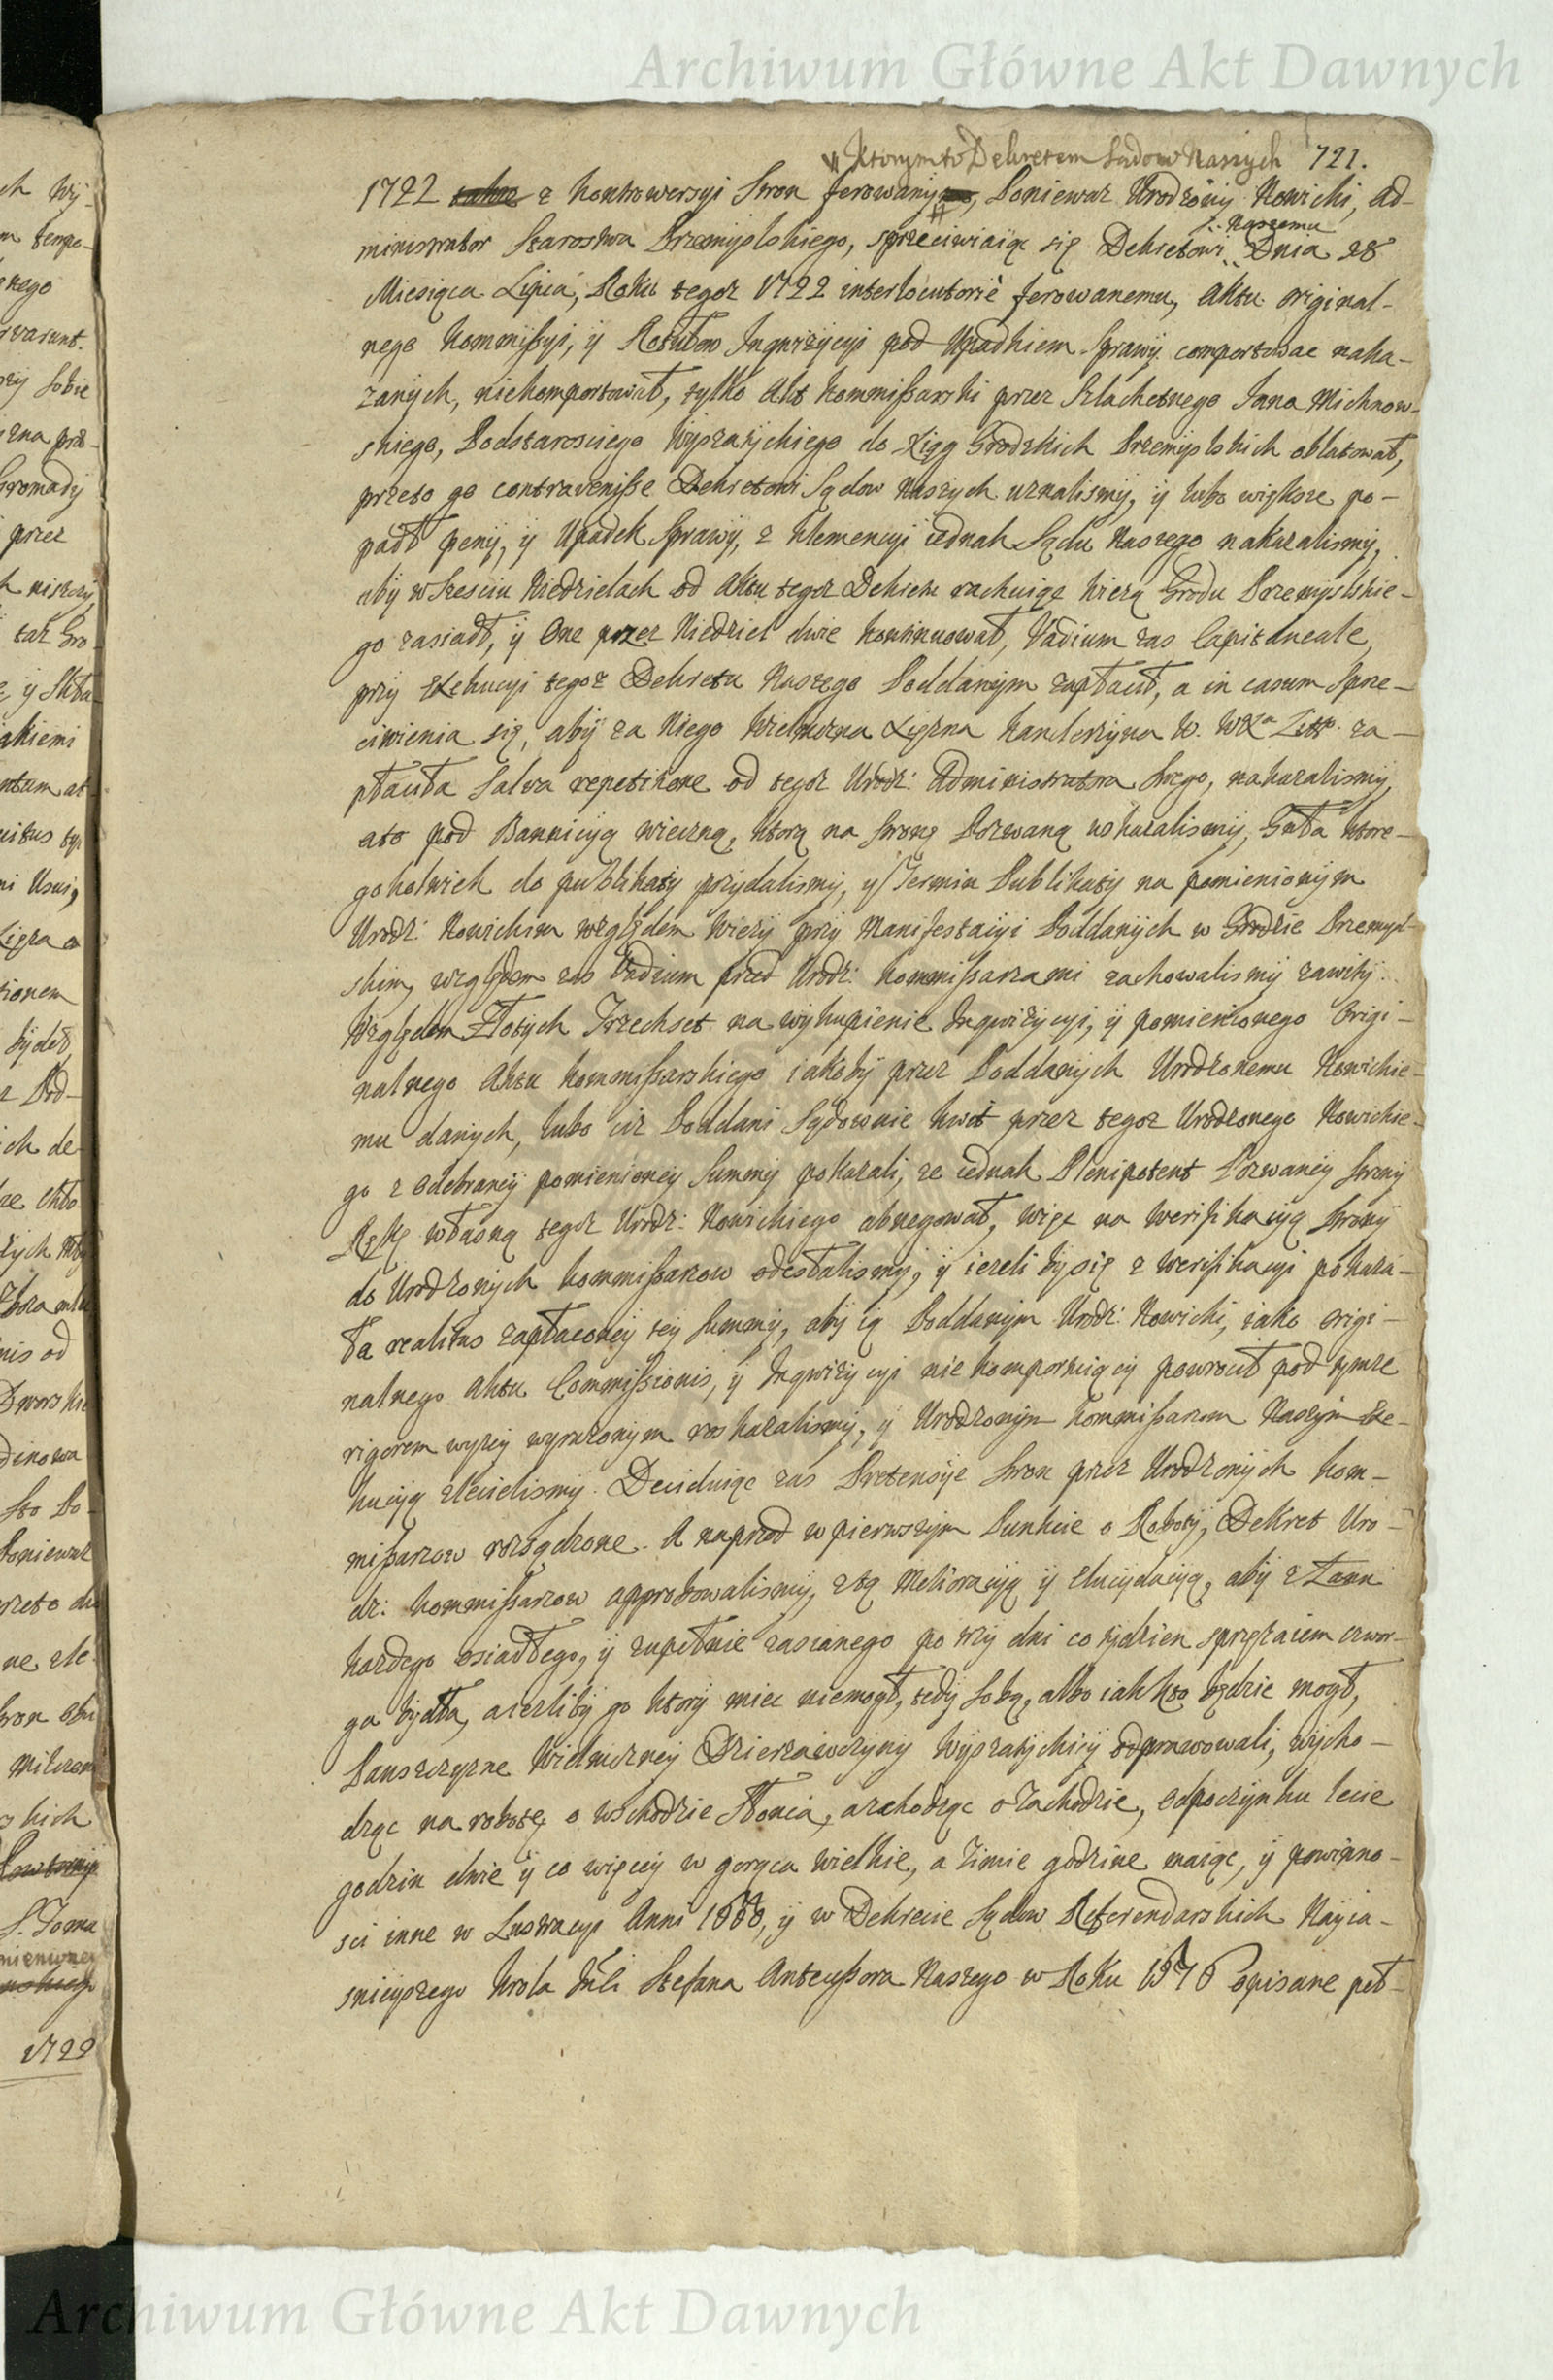 Archiwum Główne Akt Dawnych
Ktorym to Dekretem Sadow Naszych 721.
1722 z Kontrowersyi Stron ferowanym, Poniewaz Urodzony Nowicki, Ad-
ministrator Starostwa Przemyslskiego, sprzeciwiaiąc się Dekretowi S. Naszemu Dnia 28
Miesiąca Lipca, Roku tegoz 1722 interlocutorie ferowanemu, Aktu original-
nego Kommissyi, y Rotułow Inqwizycyi pod Upadkiem Sprawy comportowac naka-
zanych, niekomportował, tylko Akt Kommissarski przez Szlachetnego Jana Michnow-
skiego, Podstarosciego Wyszatyckiego do Xiąg Grodzkich Przemyslskich oblatował,
przeto go contravenisse Dekretowi Sądow Naszych uznalismy, y lubo większe po-
padł peny, y Upadek Sprawy, z Klemencyi iednak Sądu Naszego nakazalismy,
aby w Szesciu Niedzielach od Aktu tegoz Dekretu rachuiąc Wiezą Grodu Przemyslskie-
go zasiadł, y One przez Niedziel dwie kontinuował, Vadium zas Capitaneale,
przy Exekucyi tegoz Dekretu Naszego Poddanym zapłacił, a in casum Sprze-
ciwienia się, aby za Niego Wielmozna Xięzna Kanclerzyna W. WXa Litt. za-
płaciła salva repetitione od tegoz Urodz: Administratora Swego, nakazalismy,
a to pod Bannicyą wieczną, ktorą na Stronę Pozwaną wskazalismy, Gnła ktore-
gokolwiek do publikaty przydalismy, y Termin Publikaty na pomienionym
Urodz: Nowickim względem Wiezy przy Manifestacyi Poddanych w Grodzie Przemysl-
skim, względem zas Vadium przed Urodz: Kommissarzami zachowalismy zawity.
Względem Złotych Trzechset na wykupienie Inqwizycyi, y pomienionego Origi-
nalnego Aktu Kommissarskiego iakoby przez Poddanych Urodzonemu Nowickie-
mu danych, lubo ciz Poddani Sądownie kwit przez tegoz Urodzonego Nowickie-
go z odebraney pomienioney Summy pokazali, ze iednak Plenipotent Pozwaney Strony
Rękę własną tegoz Urodz: Nowickiego abnegował, więc na Weryfikacyą Strony
do Urodzonych Kommissarzow odesłalismy, y iezeli by się z Weryfikacyi pokaza-
ła realitas zapłaconey tey Summy, aby ią Poddanym Urodz: Nowicki, iako origi-
nalnego Aktu Commissionis, y Inqwizycyi nie komportuiący powrocił pod tymze
rigorem wyzey wyrazonym roskazalismy, y Urodzonym Kommissarzom Naszym Exe-
kucyą zlecielismy. Deciduiąc zas Pretensye Stron przez Urodzonych Kom-
missarzow rozsądzone. A naprzod w pierwszym Punkcie o Roboty, Dekret Uro-
dz: Kommissarzow approbowalismy, z tą Melioracyą y Elucydacyą, aby z Łanu
kazdego osiadłego, y zupełnie zasianego po trzy dni co tydzien sprzęzaiem czwor-
ga bydła, a iezliby go ktory miec niemogł, tedy Sobą, albo iak kto będzie mogł,
Panszczyzne Wielmozney Dzierzawczyny Wyszatyckiey odprawowali, wycho-
dząc na robotę o wschodzie Słonca, a zchodząc o zachodzie, odpoczynku lecie
godzin dwie y co więcey w gorąca wielkie, a zimie godzine maiąc, y powinno-
sci inne w Lustracyi Anni , y w Dekrecie Sądow Referendarskich Nayia-
snieyszego Krola Jmci Stefana Antecessora Naszego w Roku 1576 opisane peł-
Archiwum Główne Akt Dawnych